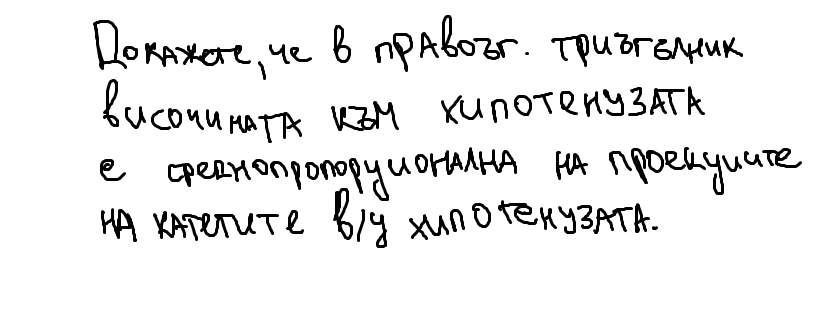 Докажете, че в правоъг. триъгълник
височината към хипотенузата
е среднопропорционална на проекциите
на катетите в/у хипотенузата.